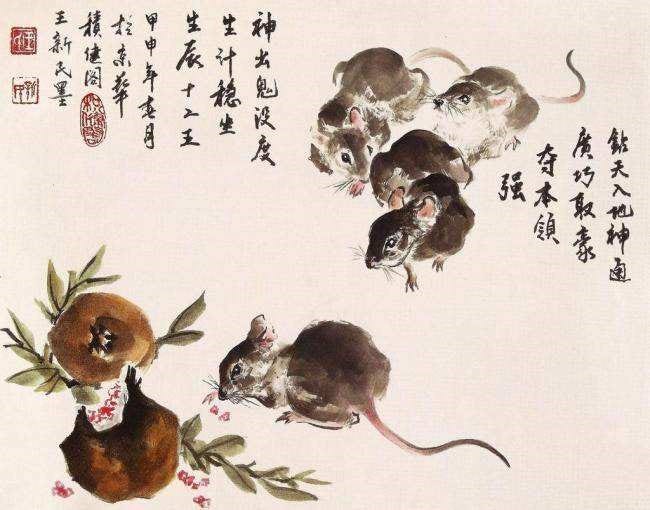 鉆天入地神通
廣巧取豪
夺本領
强
神出鬼没度
生计稳坐
生辰十二王
甲申年春月
於京華
積健阁
王新民墨